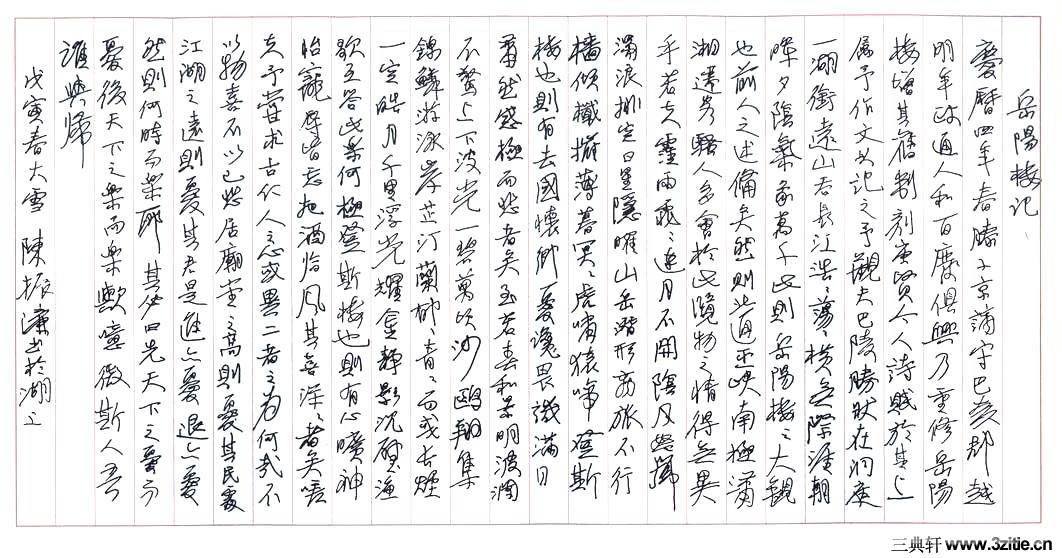 岳陽樓記
慶曆四年春滕子京謫守巴陵郡越
明年政通人和百廢俱興乃重修岳陽
樓增其舊制刻唐賢今人詩賦於其上
屬予作文以記之予觀夫巴陵勝狀在洞庭
一湖銜遠山吞長江浩々蕩々橫無際涯朝
暉夕陰氣象萬千此則岳陽樓之大觀
也前人之述備矣然則北通巫峽南極瀟
湘遷客騷人多會於此覽物之情得無異
乎若夫霪雨霏々連月不開陰風怒號
濁浪排空日星隱曜山岳潛形商旅不行
檣傾檝摧薄暮冥々虎嘯猿啼登斯
樓也則有去國懷鄉憂讒畏譏滿目
蕭然感極而悲者矣至若春和景明波瀾
不驚上下波光一碧萬頃沙鷗翔集
錦鱗游泳岸芷汀蘭郁々青々而或長煙
一空皓月千里浮光耀金靜影沉璧漁
歌互答此樂何極登斯樓也則有心曠神
怡寵辱皆忘把酒臨風其喜洋々者矣嗟
夫予嘗求古仁人之心或異二者之為何哉不
以物喜不以己悲居廟堂之高則憂其民處
江湖之遠則憂其君是進亦憂退亦憂
然則何時而樂耶其必曰先天下之憂而
憂後天下之樂而樂歟噫微斯人吾
誰與歸
戊寅春大雪 陳振濂書於湖上
三典轩 www.3zitie.cn